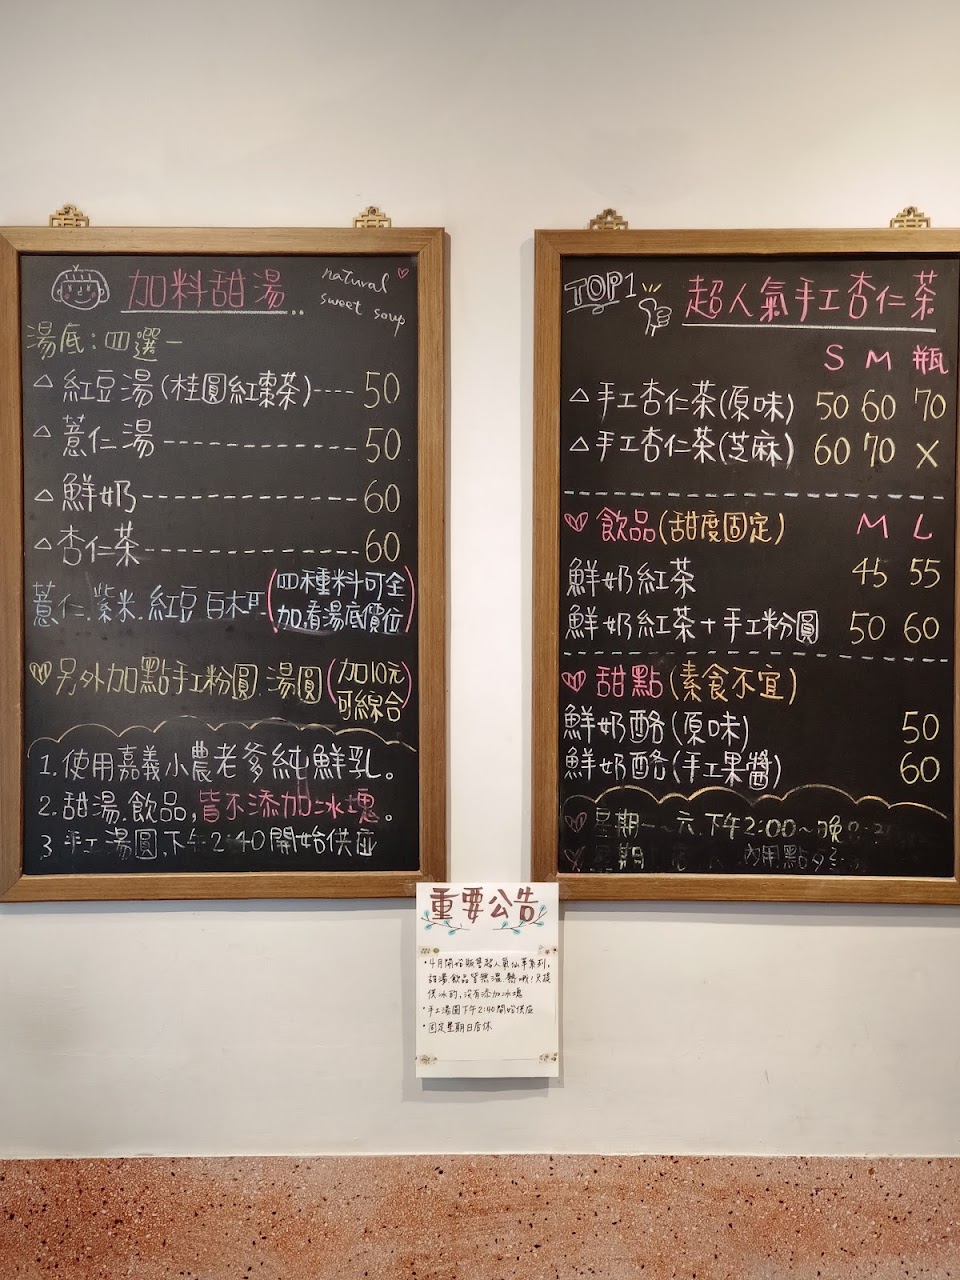 加料甜湯..
natural
sweet soup
湯底:四選一
△ 紅豆湯(桂圓紅棗茶)---- 50
△ 薏仁湯------------ 50
△ 鮮奶------------- 60
△ 杏仁茶------------- 60
薏仁.紫米.紅豆.白木耳
(四種料可全
加.看湯底價位)
另外加點手工粉圓.湯圓
(加10元
可綜合)
1.使用嘉義小農老爹純鮮乳。
2.甜湯.飲品,皆不添加冰塊.
3.手工湯圓,下午2:40開始供應
TOP1
超人氣手工杏仁茶
S M 瓶
△手工杏仁茶(原味) 50 60 70
△手工杏仁茶(芝麻) 60 70 X
飲品(甜度固定) M L
鮮奶紅茶 45 55
鮮奶紅茶+手工粉圓 50 60
甜點(素食不宜)
鮮奶酪(原味) 50
鮮奶酪(手工果醬) 60
星期一~六 下午2:00~晚
星期 內用點
重要公告
•4月開始販售超人氣仙草系列,
甜湯.飲品皆無溫.熱哦!只提
供冰的,沒有添加冰塊
•手工湯圓下午2:40開始供應
•固定星期日店休